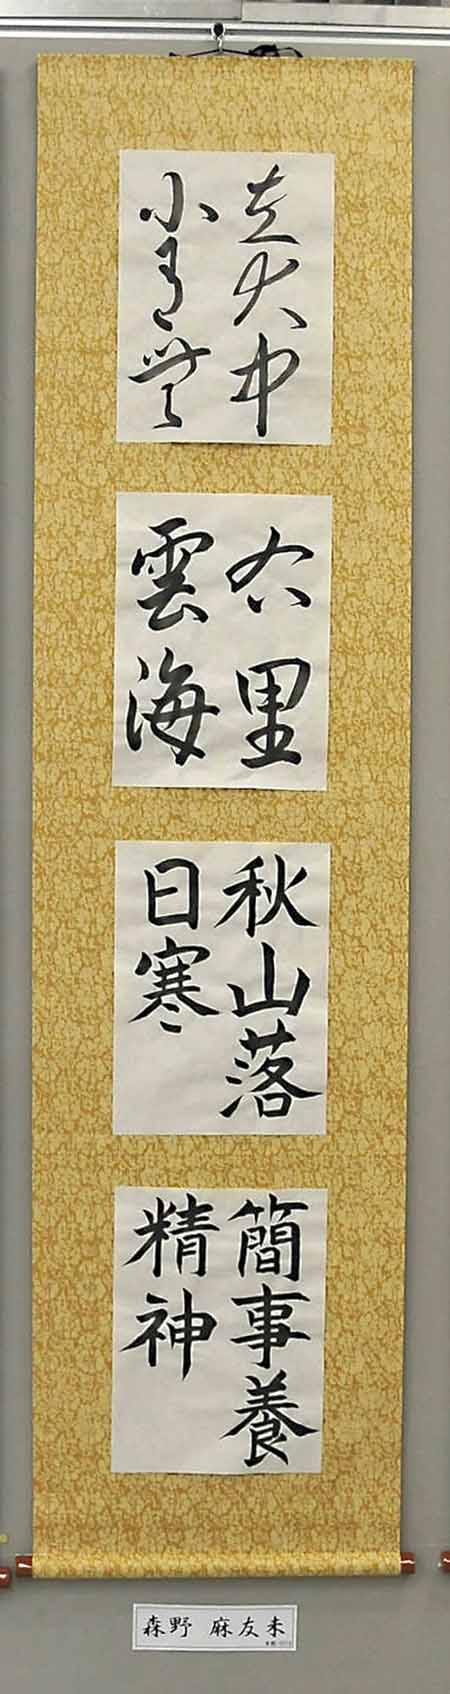 大中
小
里
雲海
秋山落
日寒
簡事養
精神
森野 麻友未